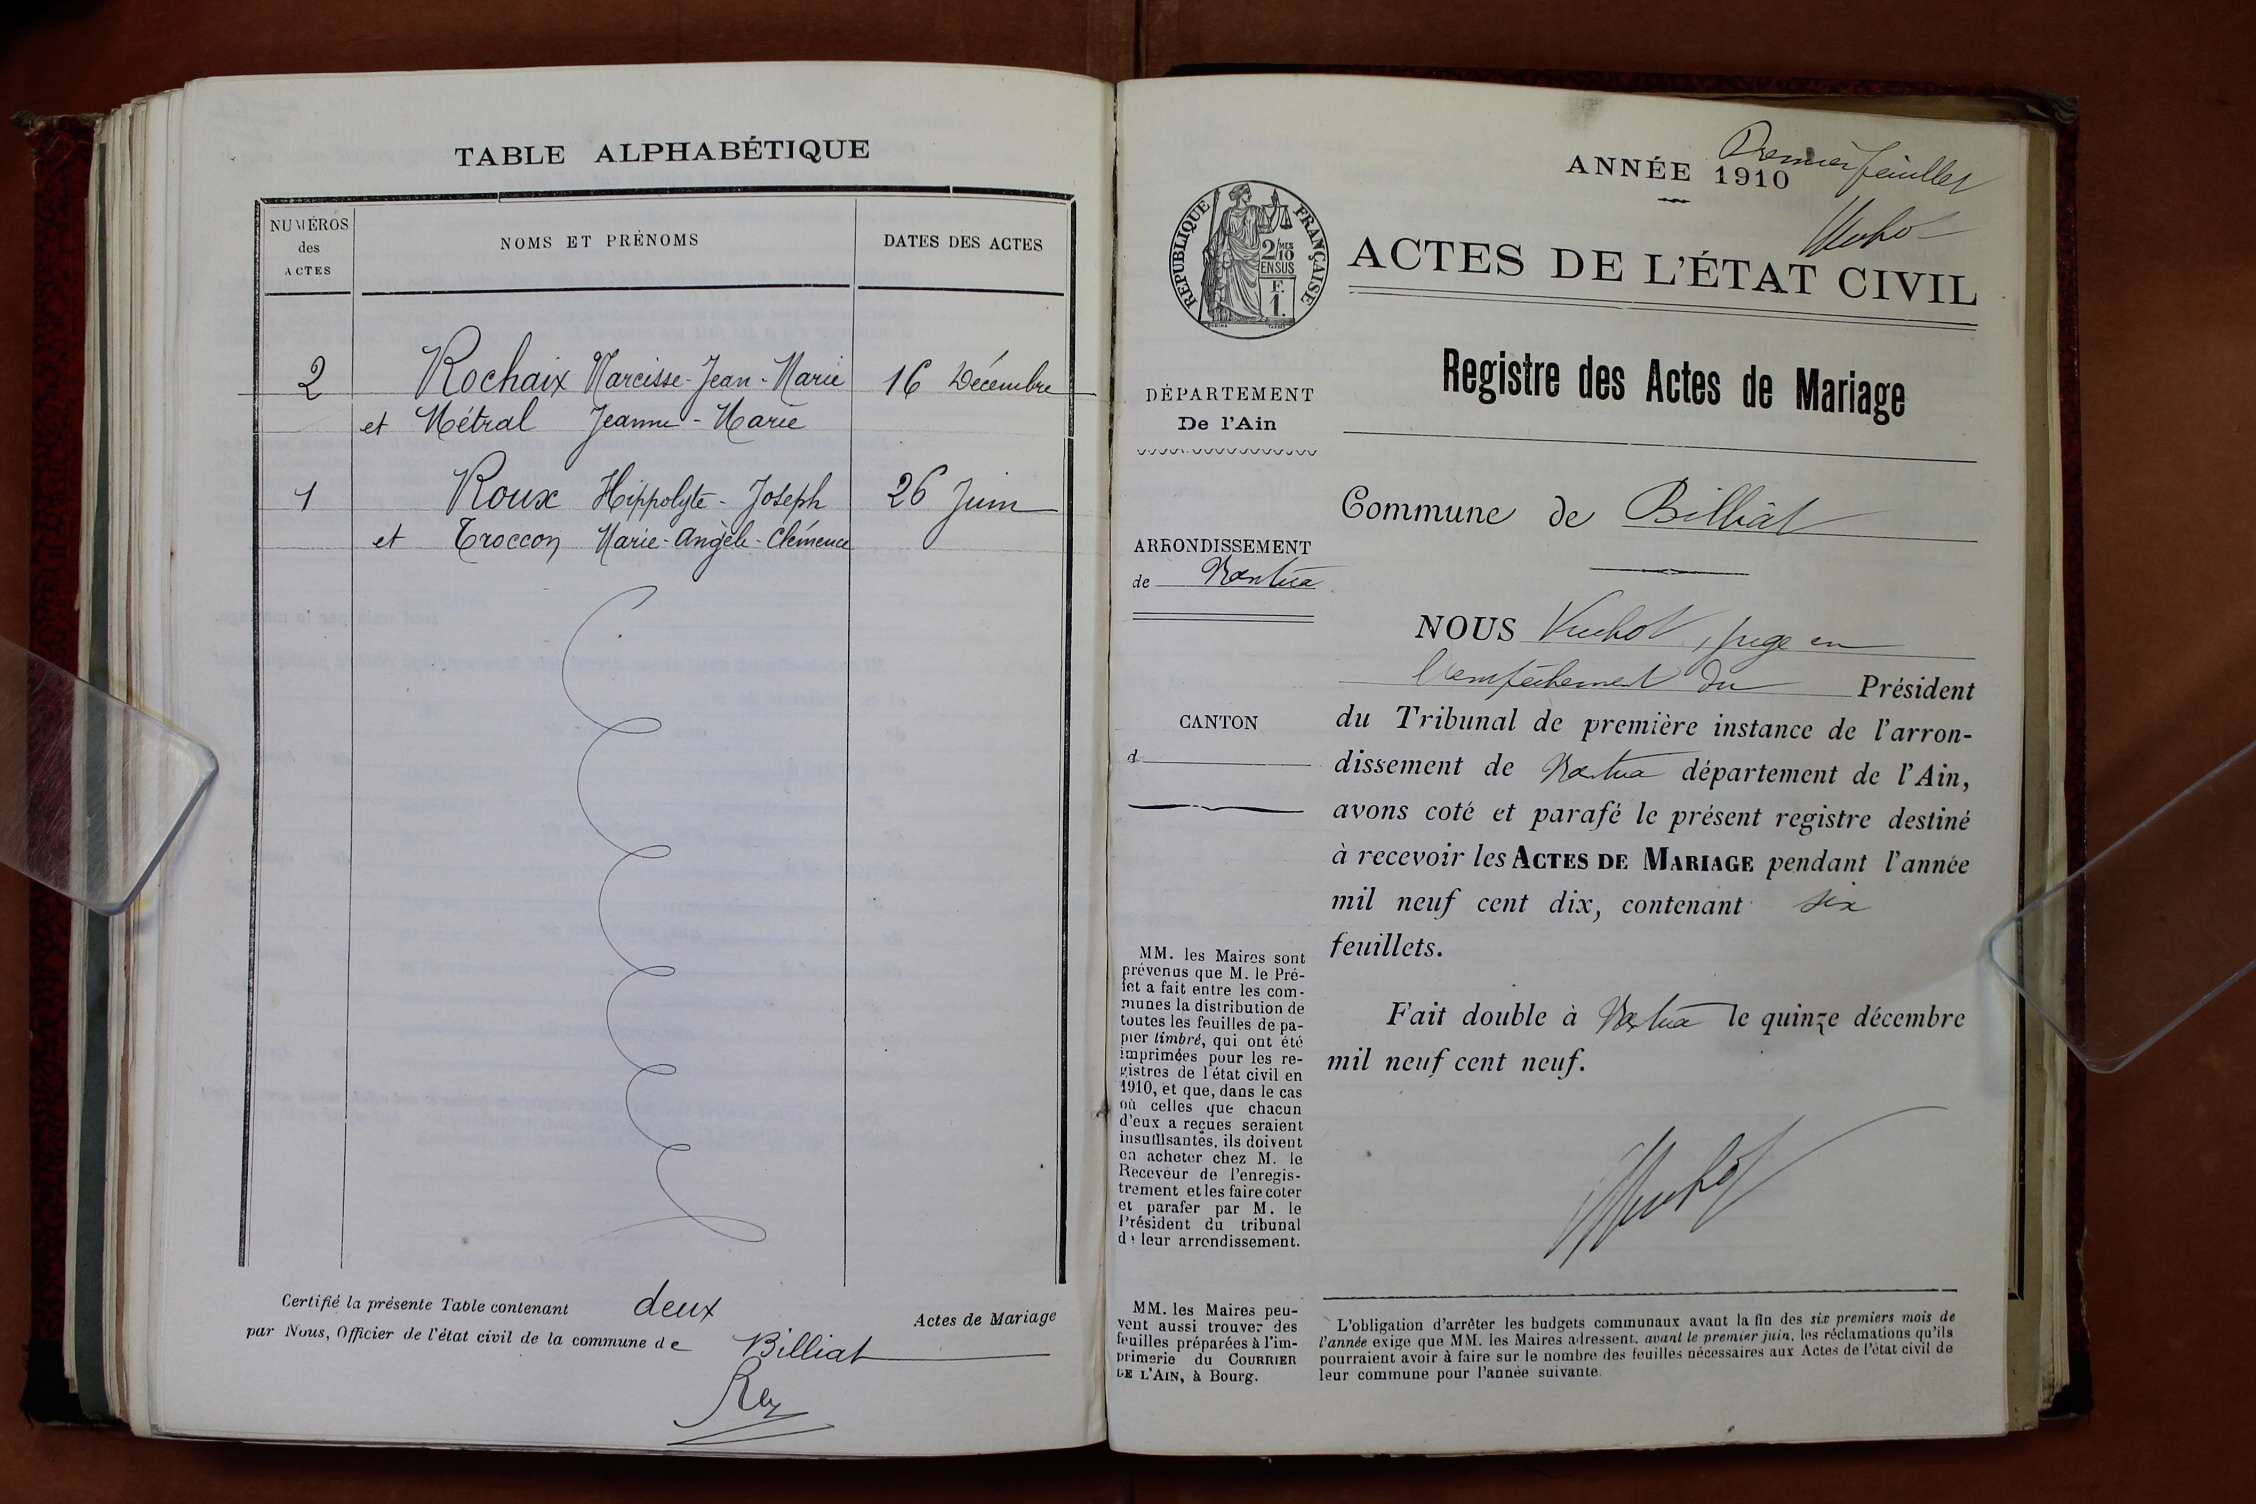 TABLE ALPHABÉTIQUE
NUMÉROS
des
ACTES
NOMS ET PRÉNOMS
DATES DES ACTES
2 Rochaix Narcisse-Jean-Marie 16 Décembre
et Métral Jeanne-Marie
1 Roux Hippolyte-Joseph 26 Juin
et Troccon Marie-Angèle-Clémence
Certifié la présente Table contenant deux Actes de Mariage
par Nous, Officier de l'état civil de la commune de Billiat
Rey
Premier feuillet
ANNÉE 1910
RÉPUBLIQUE FRANÇAISE
2/10
MES
EN SUS
F.
1.
ACTES DE L'ÉTAT CIVIL
Registre des Actes de Mariage
DÉPARTEMENT
De l'Ain
ARRONDISSEMENT
de Nantua
CANTON
d
MM. les Maires sont
prévenus que M. le Pré-
fet a fait entre les com-
munes la distribution de
toutes les feuilles de pa-
pier timbré, qui ont été
imprimées pour les re-
gistres de l'état civil en
1910, et que, dans le cas
où celles que chacun
d'eux a reçues seraient
insuffisantes, ils doivent
en acheter chez M. le
Receveur de l'enregis-
trement et les faire coter
et parafer par M. le
Président du tribunal
de leur arrondissement.
MM. les Maires peu-
vent aussi trouver des
feuilles préparées à l'im-
primerie du COURRIER
DE L'AIN, à Bourg.
Commune de Billiat
NOUS Vuchot, juge en
l'empêchement du Président
du Tribunal de première instance de l'arron-
dissement de Nantua département de l'Ain,
avons coté et parafé le présent registre destiné
à recevoir les ACTES DE MARIAGE pendant l'année
mil neuf cent dix, contenant six
feuillets.
Fait double à Nantua le quinze décembre
mil neuf cent neuf.
L'obligation d'arrêter les budgets communaux avant la fin des six premiers mois de
l'année exige que MM. les Maires adressent, avant le premier juin, les réclamations qu'ils
pourraient avoir à faire sur le nombre des feuilles nécessaires aux Actes de l'état civil de
leur commune pour l'année suivante.